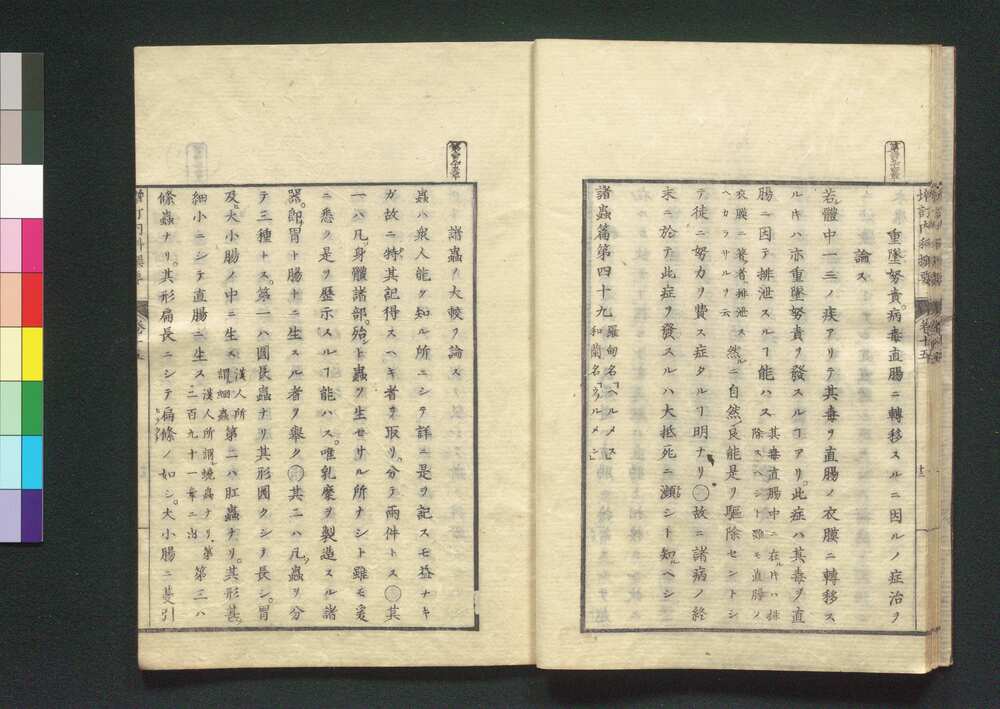 重墜努責病毒直腸ニ轉移スルニ因ルノ症治ヲ
論ス
若體中一二ノ疾アリテ其毒ヲ直腸ノ衣膜ニ轉移ス
ルキハ亦重墜努責ヲ發スルコアリ此症ハ其毒ヲ直
腸ニ因テ排泄スルコ能ハス
其毒直腸中ニ在ル片ハ排
除スヘシト雖モ直腸ノ
衣膜ニ著者ハ排泄ス
ヘカラサルヲ云
然ルニ自然ノ良能是ヲ驅除セントシ
テ徒ニ努力ヲ費ス症タルコ明ナリ
故ニ諸病ノ終
末ニ於テ此症ヲ發スルハ大抵死ニ瀕シト知ルヘシ
諸蟲篇第四十九
羅甸名「ヘルメス」
和蘭名「ウヲルメン」
諸蟲ノ大較ヲ論ス
蟲ハ衆人能ク知ル所ニシテ詳ニ是ヲ記スモ益ナキ
ガ故ニ特其記得スヘキ者ヲ取リ分テ兩件トス
其
一ハ凡ソ身體諸部殆ト蟲ヲ生セサル所ナシト雖モ爰
ニ悉ク是ヲ歷示スルコ能ハス唯乳糜ヲ製造スル諸
器即胃ト腸トニ生スル者ヲ舉ク
其二ハ凡ソ蟲ヲ分
テ三種トス第一ハ圓長蟲ナリ其形圓クシテ長シ胃
及ヒ大小腸ノ中ニ生ス
漢人所
謂蚘蟲
第二ハ肛蟲ナリ其形甚タ
細小ニシテ直腸ニ生ス
漢人所謂蟯蟲ナリ第
三百九十一章ニ出
第三ハ
條蟲ナリ其形扁長ニシテ扁條ノ如シ大小腸ニ蔓引